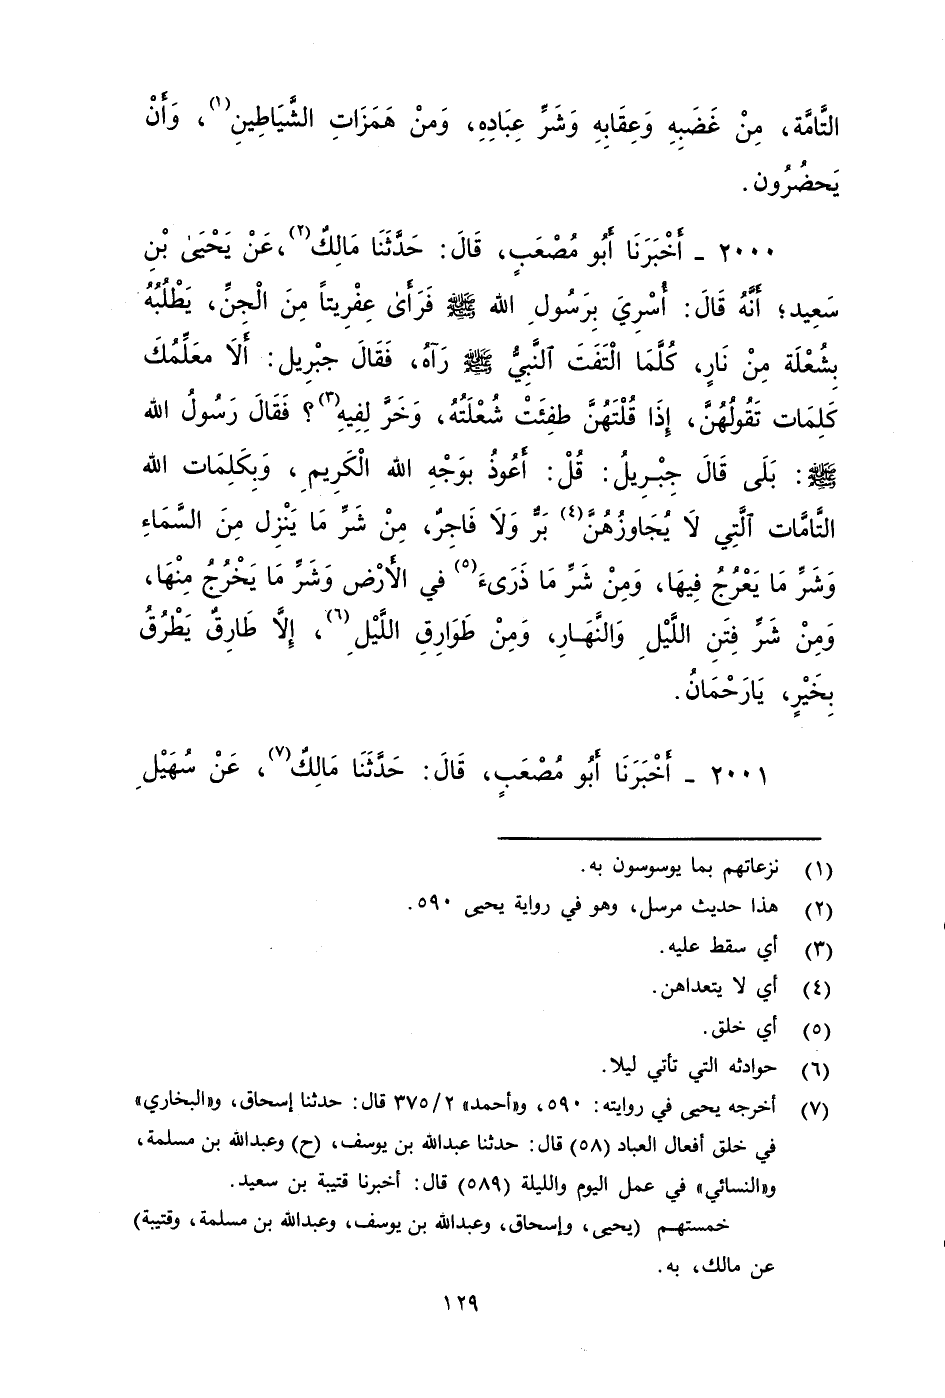 التَّامَّة، مِنْ غَضَبِهِ وَعِقَابِهِ وَشَرِّ عِبَادِهِ، وَمنْ هَمَزَاتِ الشَّيَاطِينِ(١)، وَأَنْ
يَحضُرُون.
٢٠٠٠ ـ أَخْبَرَنَا أَبُو مُصْعَبٍ، قَالَ: حَدَّثَنَا مَالِكٌ(٢)، عَنْ يَحْيَىٰ بْنِ
سَعِيد؛ أَنَّهُ قَالَ: أُسْرِيَ بِرَسُولِ الله ﷺ فَرَأَىٰ عِفْرِيتاً مِنَ الْجِنِّ، يَطْلُبُهُ
بِشُعْلَة مِنْ نَارٍ، كُلَّمَا الْتَفَتَ ٱلنَّبِيُّ ﷺ رَآهُ، فَقَالَ جِبْرِيل: أَلَا معَلِّمُكَ
كَلِمَات تَقُولُهُنَّ، إِذَا قُلْتَهُنَّ طفِئَتْ شُعْلَتُهُ، وَخَرَّ لِفِيهِ(٣)؟ فَقَالَ رَسُولُ الله
ﷺ: بَلَى قَالَ جِبْرِيلُ: قُلْ: أَعُوذُ بوَجْهِ الله الْكَرِيمِ، وَبِكَلِمَات الله
التَّامَّات ٱلَّتِي لَا يُجَاوزُهُنَّ(٤) بَرٌّ وَلَا فَاجِرٌ، مِنْ شَرِّ مَا يَنْزِل مِنَ السَّمَاءِ
وَشَرِّ مَا يَعْرُجُ فِيهَا، وَمِنْ شَرِّ مَا ذَرَىءَ(٥) في الأَرْضِ وَشَرِّ مَا يَخْرُجُ مِنْهَا،
وَمِنْ شَرِّ فِتَنِ اللَّيْلِ وَالنَّهَارِ، وَمِنْ طَوَارِقِ اللَّيْلِ(٦)، إِلَّا طَارِقٌ يَطْرُقُ
بِخَيْرٍ، يَارَحْمَانُ.
٢٠٠١ ـ أَخْبَرَنَا أَبُو مُصْعَبٍ، قَالَ: حَدَّثَنَا مَالِكٌ(٧)، عَنْ سُهَيْلِ
(١) نزعاتهم بما يوسوسون به.
(٢) هذا حديث مرسل، وهو في رواية يحيى ٥٩٠.
(٣) أي سقط عليه.
(٤) أي لا يتعداهن.
(٥) أي خلق.
(٦) حوادثه التي تأتي ليلا.
(٧) أخرجه يحيى في روايته: ٥٩٠، و«أحمد» ٢/ ٣٧٥ قال: حدثنا إسحاق، و«البخاري»
في خلق أفعال العباد (٥٨) قال: حدثنا عبدالله بن يوسف، (ح) وعبدالله بن مسلمة،
و«النسائي» في عمل اليوم والليلة (٥٨٩) قال: أخبرنا قتيبة بن سعيد.
خمستهم (يحيى، وإسحاق، وعبدالله بن يوسف، وعبدالله بن مسلمة، وقتيبة)
عن مالك، به.
١٢٩